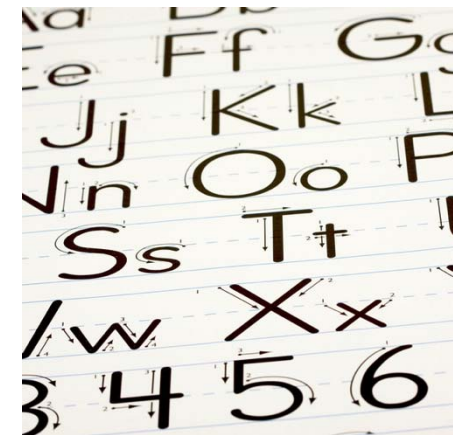 Aa Bb
Ee Ff G
Jj Kk L
Nn Oo P
Ss Tt
w Xx
3 4 5 6